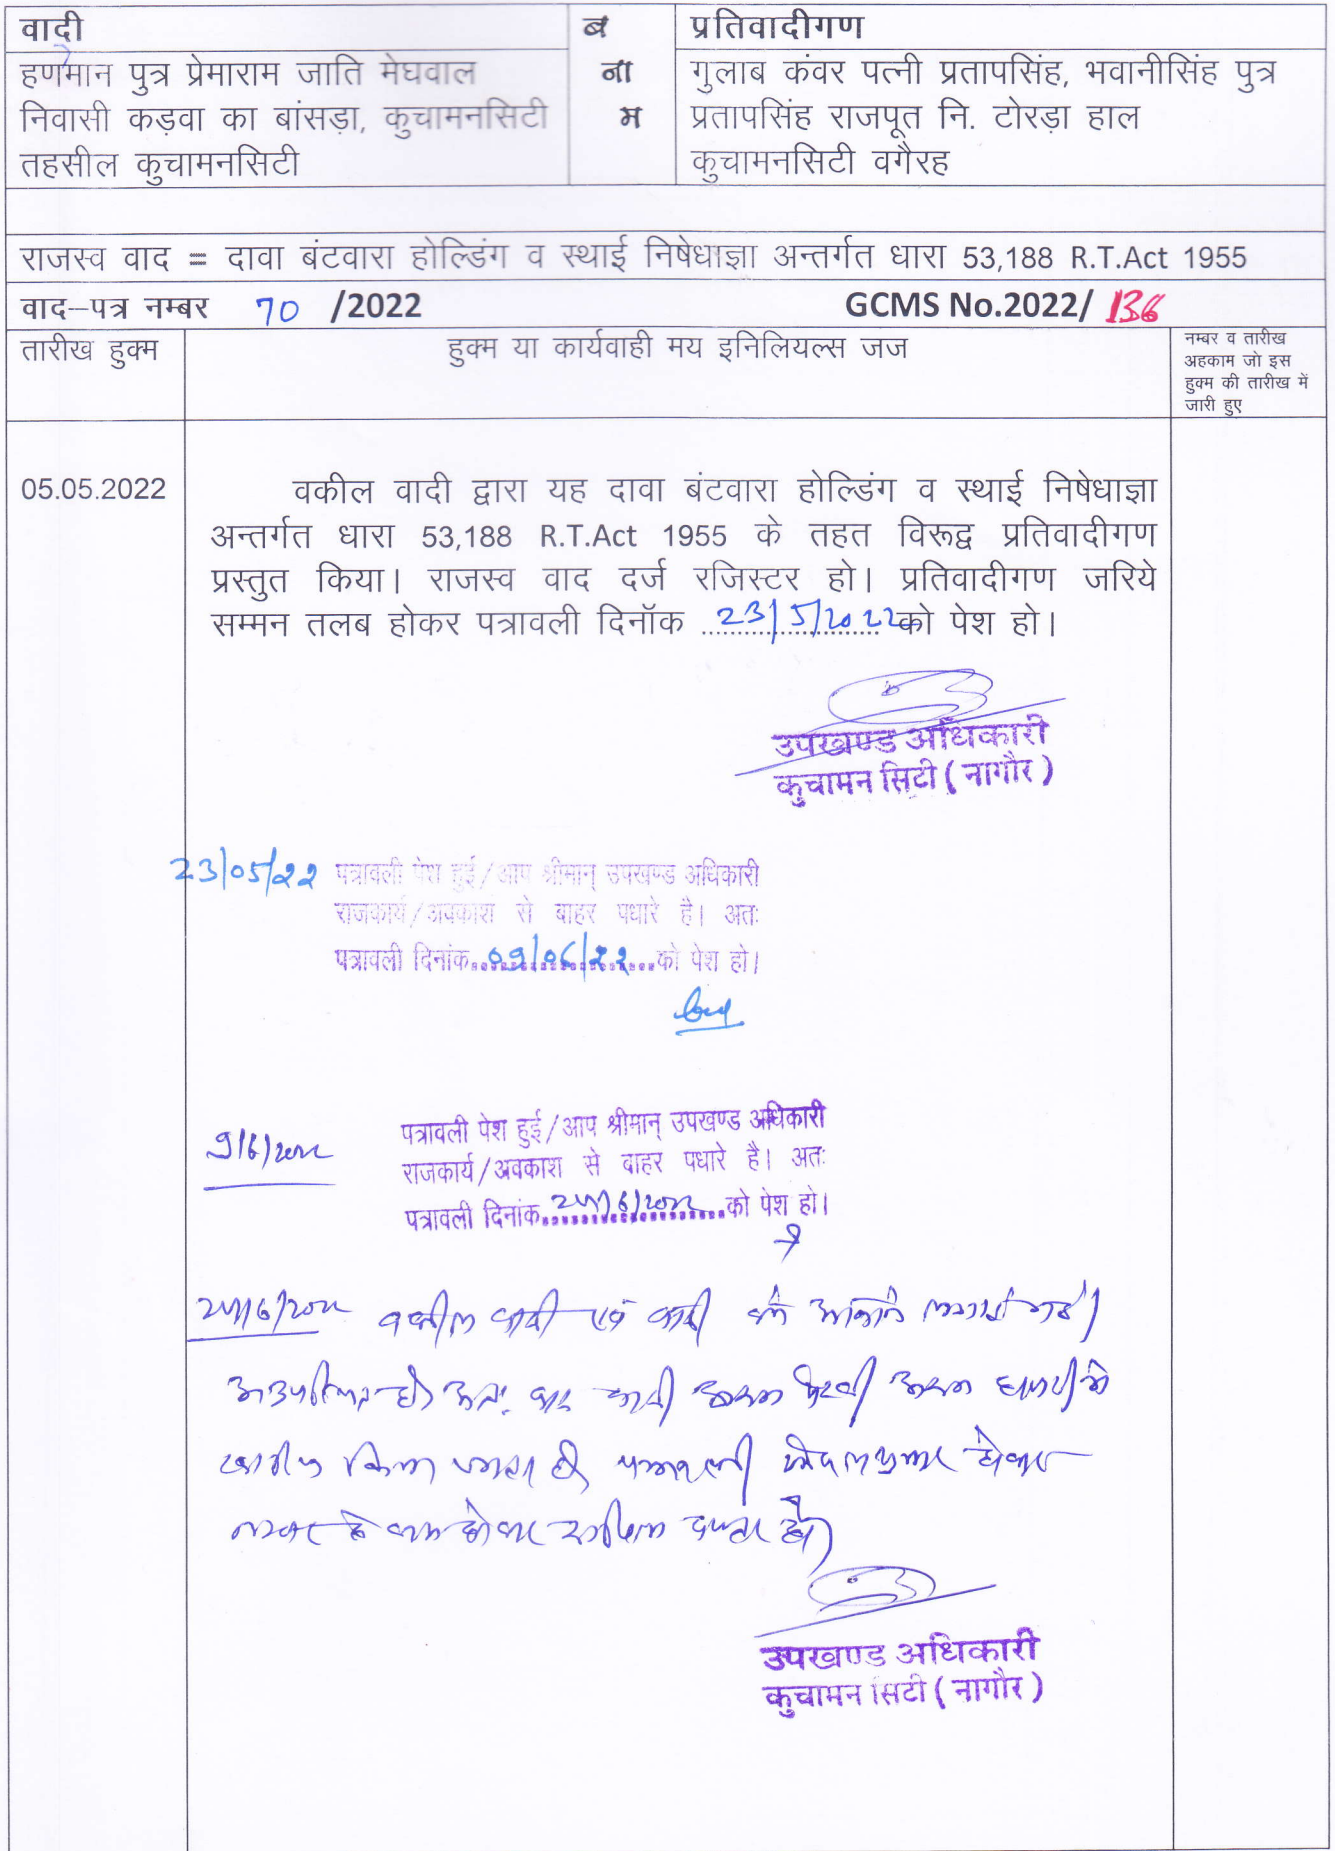 वादी
ब
ना
म
प्रतिवादीगण
हणमान पुत्र प्रेमाराम जाति मेघवाल
निवासी कड़वा का बांसड़ा, कुचामनसिटी
तहसील कुचामनसिटी
गुलाब कंवर पत्नी प्रतापसिंह, भवानीसिंह पुत्र
प्रतापसिंह राजपूत नि. टोरड़ा हाल
कुचामनसिटी वगैरह
राजस्व वाद = दावा बंटवारा होल्डिंग व स्थाई निषेधाज्ञा अन्तर्गत धारा 53,188 R.T.Act 1955
वाद–पत्र नम्बर 70 /2022 GCMS No.2022/ 136
तारीख हुक्म
हुक्म या कार्यवाही मय इनिलियल्स जज
नम्बर व तारीख
अहकाम जो इस
हुक्म की तारीख में
जारी हुए
05.05.2022
वकील वादी द्वारा यह दावा बंटवारा होल्डिंग व स्थाई निषेधाज्ञा
अन्तर्गत धारा 53,188 R.T.Act 1955 के तहत विरूद्व प्रतिवादीगण
प्रस्तुत किया। राजस्व वाद दर्ज रजिस्टर हो। प्रतिवादीगण जरिये
सम्मन तलब होकर पत्रावली दिनॉक 23/5/2022 को पेश हो।
उपखण्ड अधिकारी
कुचामन सिटी ( नागौर )
23/05/22 पत्रावली पेश हुई/आप श्रीमान् उपखण्ड अधिकारी
राजकार्य/अवकाश से बाहर पधारे है। अतः
पत्रावली दिनांक 09/06/22 को पेश हो।
9/6/2022 पत्रावली पेश हुई/आप श्रीमान् उपखण्ड अधिकारी
राजकार्य/अवकाश से बाहर पधारे है। अतः
पत्रावली दिनांक 24/6/2022 को पेश हो।
24/6/2022 वकील वादी एवं वादी को आवाजे लगवाई गई।
अनुपस्थित है। अतः वाद वादी अदम पैरवी अदम हाजरी मे
खारीज किया जाता है। पत्रावली फैसलशुमार होकर
नम्बर से कम होकर दाखिल दफ्तर हो।
उपखण्ड अधिकारी
कुचामन सिटी ( नागौर )